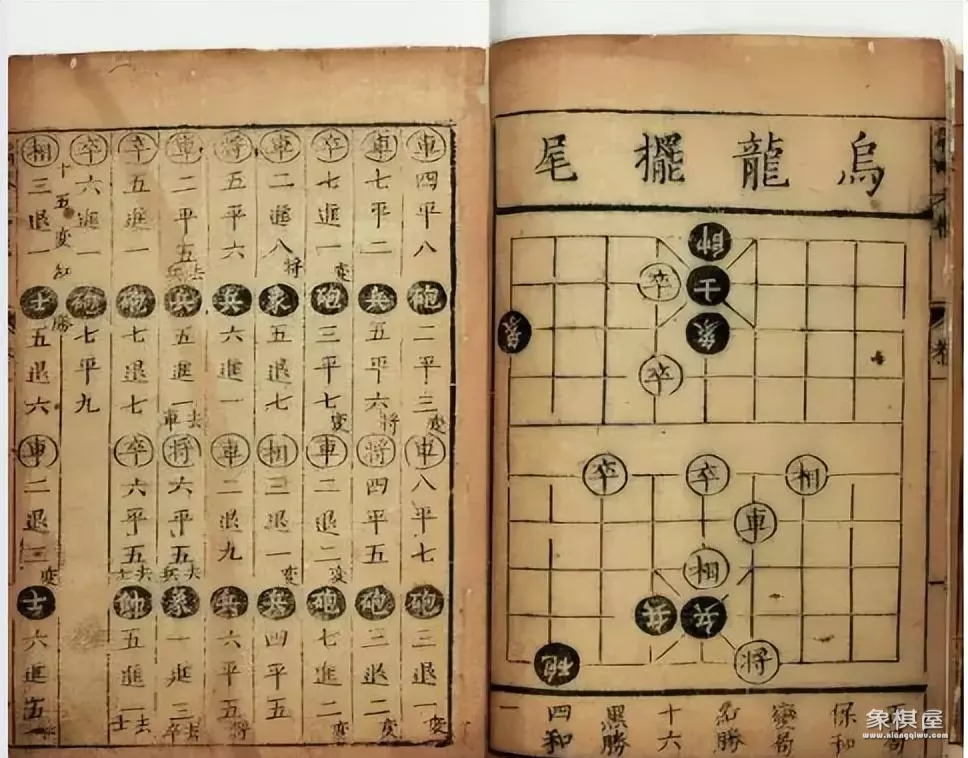 烏龍擺尾
帥
卒士
象象
卒
卒卒相
車
相
兵兵
砲將
保和
紅勝
十六
黑勝
四和
一
車四平八砲二平三變車八平七砲三退一變
車七平二兵五平六將將四平五砲三退二
卒七進一變砲三平七車二退二變砲七進二變
車二進八將象五退七相三退一變兵四平五
將五平六兵六進一車二退九兵六平五將
車二平五去兵兵五進一去車將六平五去兵象一進三去卒
卒五進一砲七退七卒六平五去士帥五進一去士
卒六進一砲七平九
十五變紅勝
相三退一士五退六車二退三變士六進五
象棋屋
www.xiangqiwu.com